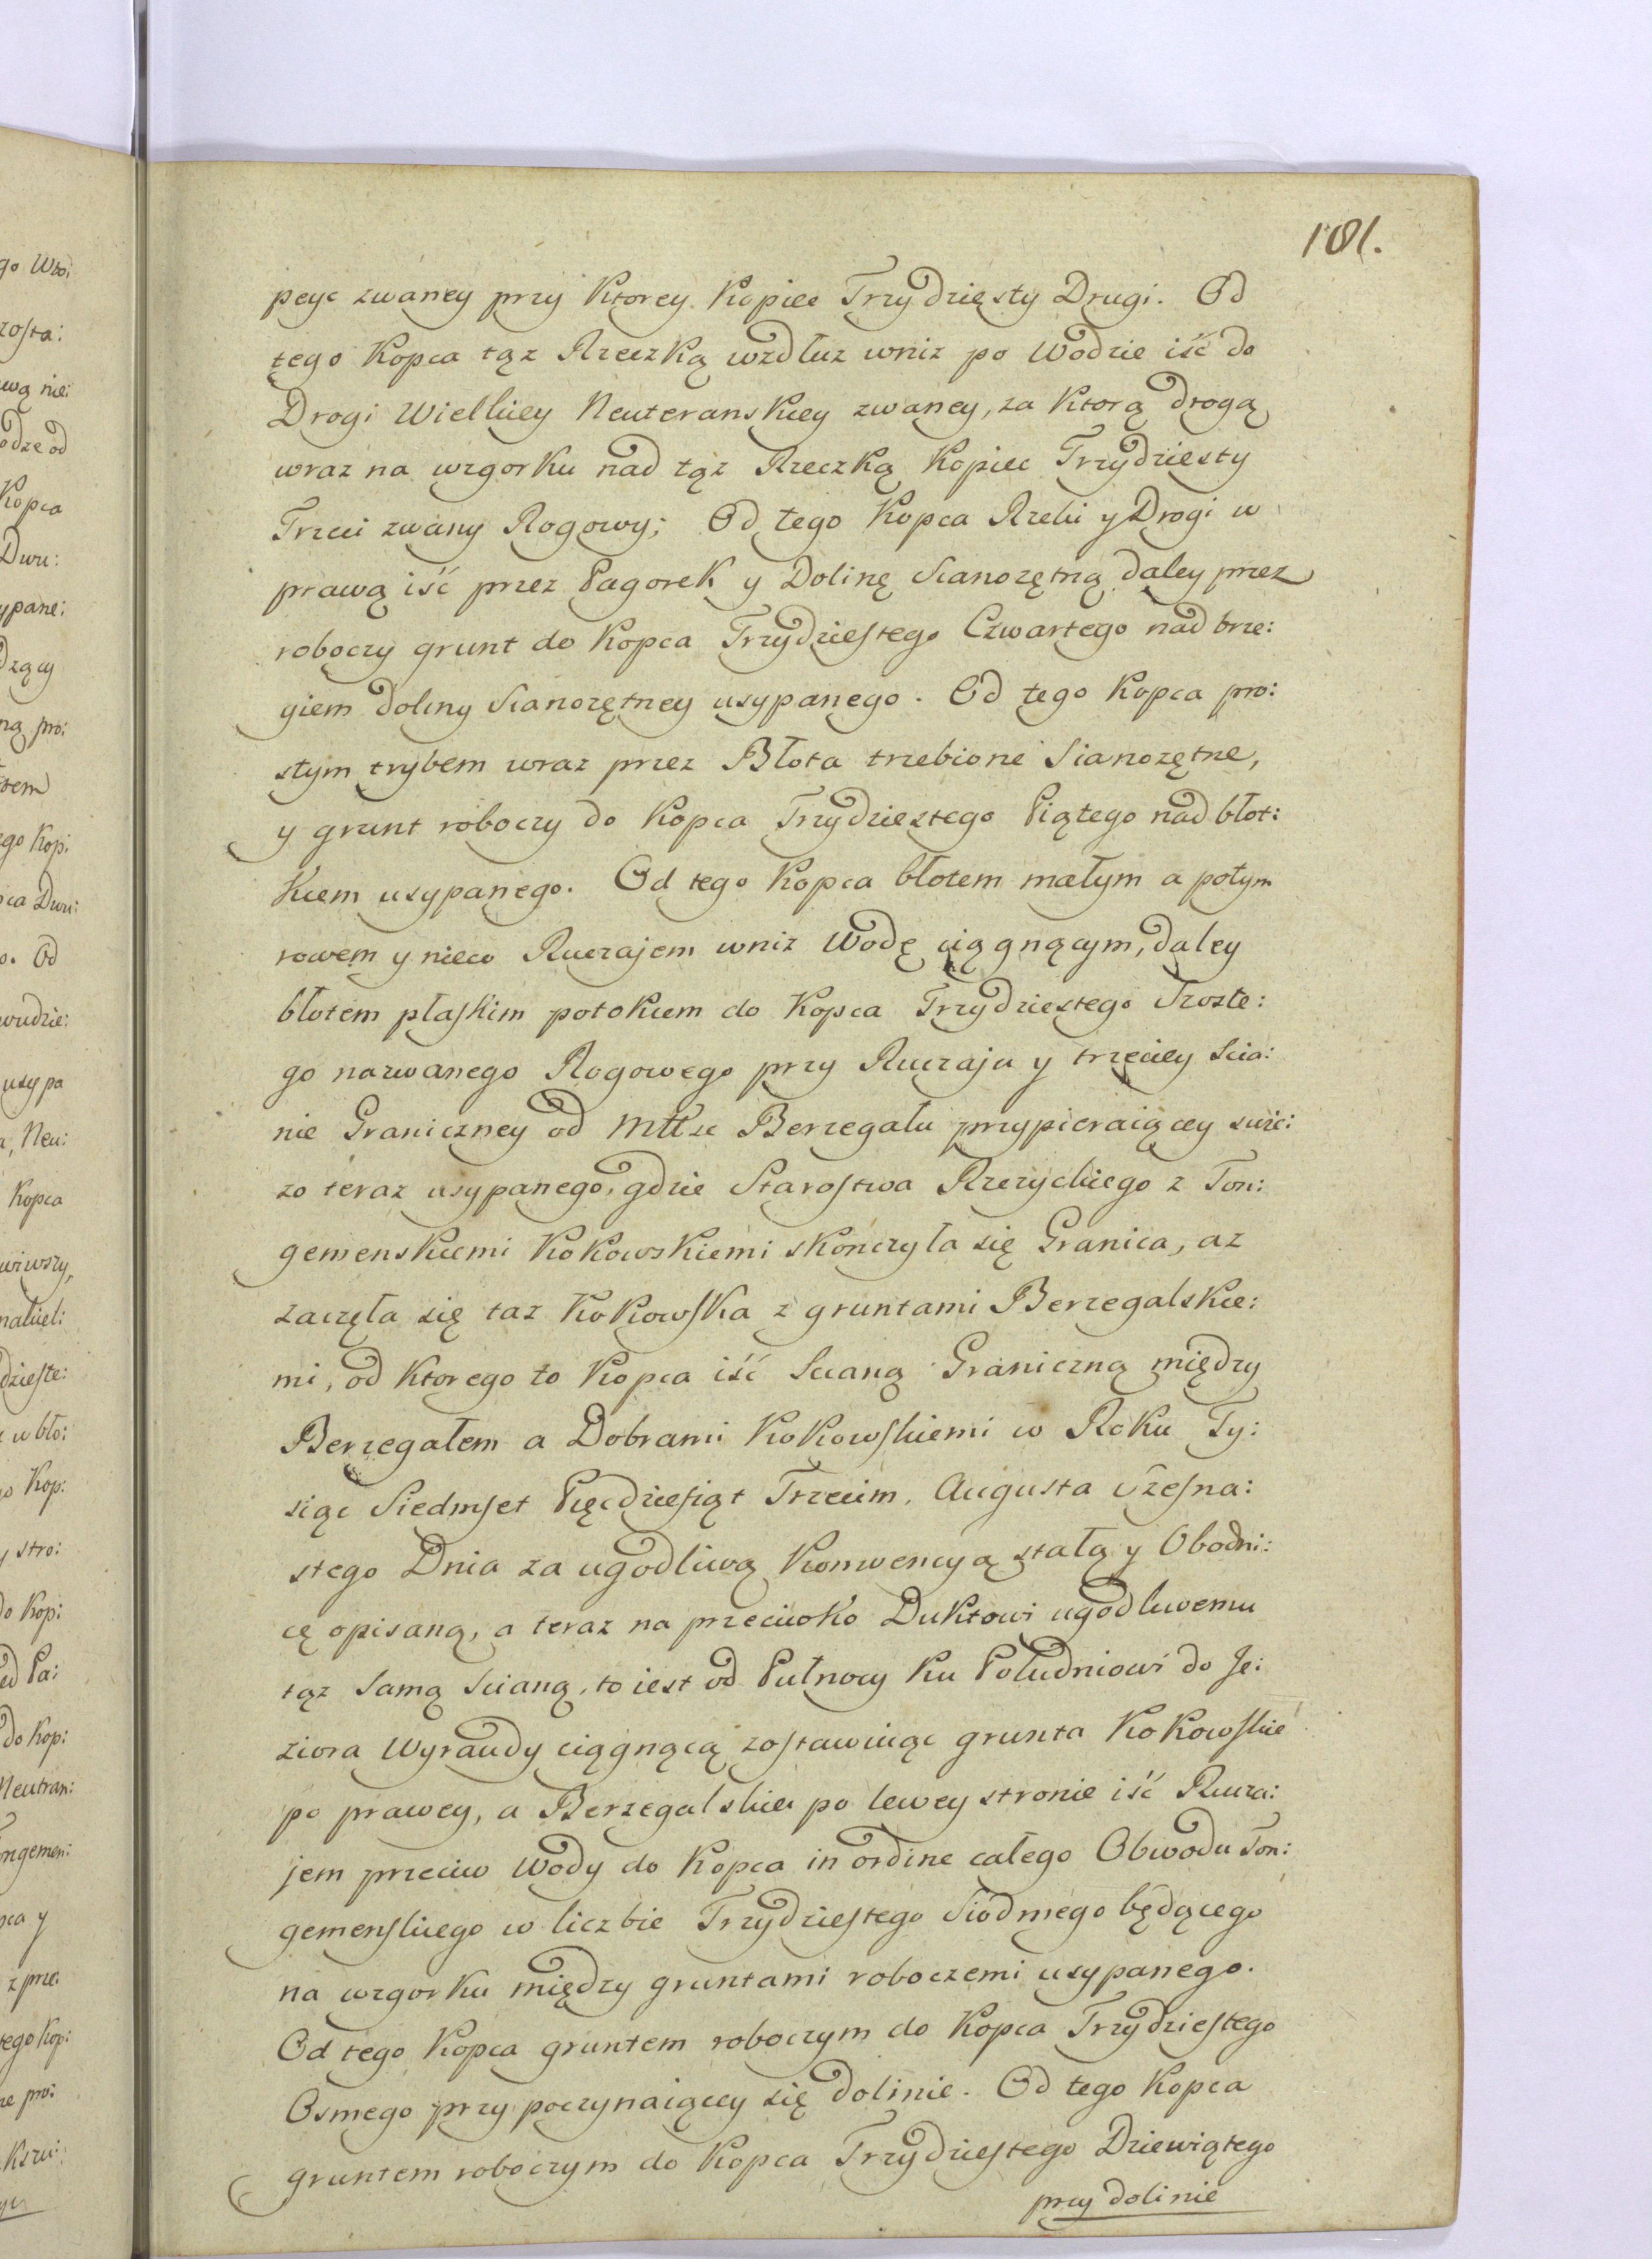 181.
peyc zwaney przy Ktorey Kopiec Trzydzięsty Drugi. Od
tego Kopca tąz Rzeczką wzdłuz wniz po Wodzie iść do
Drogi Wielkiey Neuteranskiey zwaney, za Ktorą drogą
wraz na wzgorku nad tąz Rzeczką Kopiec Trzydziesty
Trzeci zwany Rogowy; Od tego Kopca Rzeki y Drogi w
prawą iść przez Pagorek y Dolinę Sianozętną daley przez
roboczy grunt do Kopca Trzydziestego Czwartego nad brze:
giem doliny Sianozętney usypanego. Od tego Kopca pro:
stym trybem wraz przez Błota trzebione Sianozętne,
y grunt roboczy do Kopca Trzydziestego Piątego nad błot:
kiem usypanego. Od tego Kopca błotem małym a potym
rowem y nieco Ruczajem wniz Wodę ciągnącym, daley
błotem płaskim potokiem do Kopca Trzydziestego Szoste:
go nazwanego Rogowego przy Ruczaju y trzeciey Scia:
nie Graniczney od Mttże Berzegału przypieraiącey swie:
zo teraz usypanego, gdzie Starostwa Rzezyckiego z Ton:
gemenskiemi Kokowskiemi skończyła się Granica, az
zaczęła się taz Kokowska z gruntami Berzegalskie:
mi, od Ktorego to Kopca iść Scianą Graniczną między
Berzegałem a Dobrami Kokowskiemi w Roku Ty:
siąc Siedmset Pięcdziesiąt Trzecim, Augusta Szesna:
stego Dnia za ugodliwą Konwencyą stałą y Obodni:
cę opisaną, a teraz na przeciwko Duktowi ugodliwemu
tąz Samą Scianą, to iest od Pułnocy Ku Południowi do Je:
ziora Wyraudy ciągnącą zostawuiąc grunta Kokowskie
po prawey, a Berzegalskie po lewey stronie iść Rucza:
jem przeciw Wody do Kopca in ordine całego Obwodu Ton:
gemenskiego w liczbie Trzydziestego Siodmego będącego
na wzgorku między gruntami roboczemi usypanego.
Od tego Kopca gruntem roboczym do Kopca Trzydziestego
Osmego przy poczynaiącey się dolinie. Od tego Kopca
gruntem roboczym do Kopca Trzydziestego Dziewiątego
przy dolinie